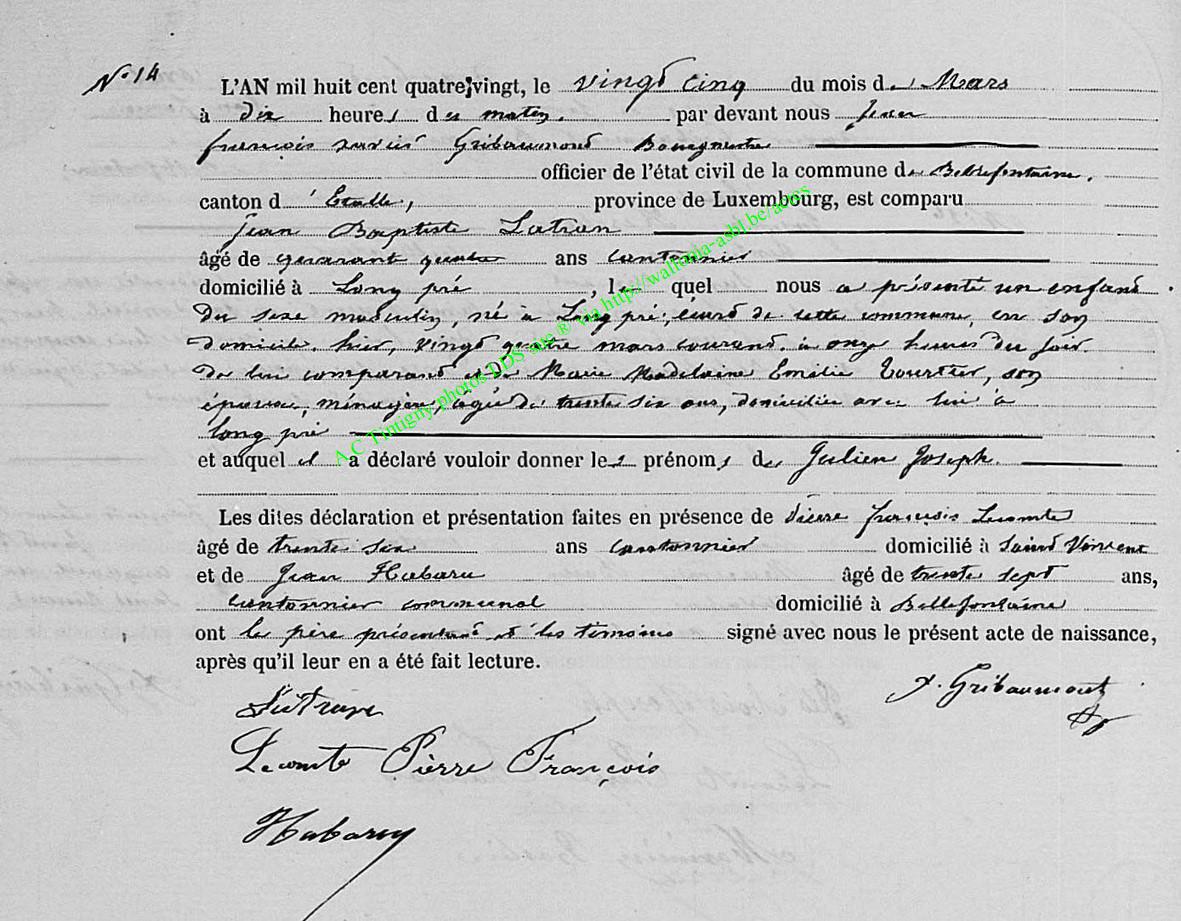 N° 14
L'AN mil huit cent quatre-vingt, le vingt cinq du mois de Mars
à dix heures du matin. par devant nous Jean
françois xavier Gribaumont Bourgmestre
officier de l'état civil de la commune de Bellefontaine,
canton d'Etalle, province de Luxembourg, est comparu
Jean Baptiste Lutran
âgé de quarant quatre ans cantonnier
domicilié à Long pré, le quel nous a présenté un enfant
du sexe masculin, né à Long pré, écart de cette commune, en son
domicile, hier, vingt quatre mars courant, à onze heures du soir
de lui comparant et de Marie Madelaine Emélie Tourtier, son
épouse, ménagère, âgée de trente six ans, domiciliée avec lui à
long pré
et auquel il a déclaré vouloir donner les prénoms de Julien Joseph.
Les dites déclaration et présentation faites en présence de Pierre françois Lecomte
âgé de trente six ans cantonnier domicilié à Saint Vincent
et de Jean Habaru âgé de trente sept ans,
cantonnier communal domicilié à Bellefontaine
ont le père présentant et les témoins signé avec nous le présent acte de naissance,
après qu'il leur en a été fait lecture.
x. Gribaumont
Lecomte Pierre François
Habaru
A.C Tintigny photos DDS site ® via http://wallonia-asbl.be/actes